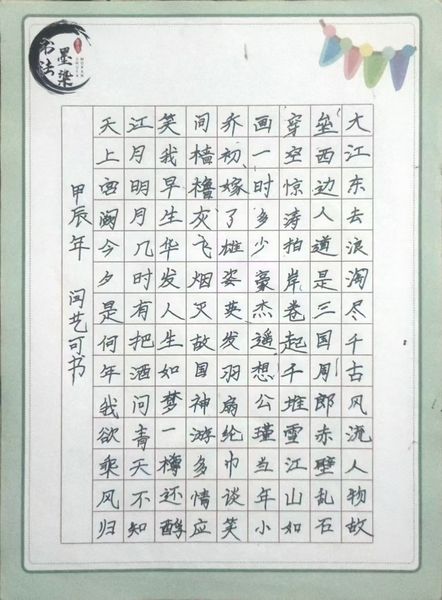 墨染
书法
大江东去浪淘尽千古风流人物故
垒西边人道是三国周郎赤壁乱石
穿空惊涛拍岸卷起千堆雪江山如
画一时多少豪杰遥想公瑾当年小
乔初嫁了雄姿英发羽扇纶巾谈笑
间樯橹灰飞烟灭故国神游多情应
笑我早生华发人生如梦一樽还酹
江月明月几时有把酒问青天不知
天上宫阙今夕是何年我欲乘风归
甲辰年 闫艺可书